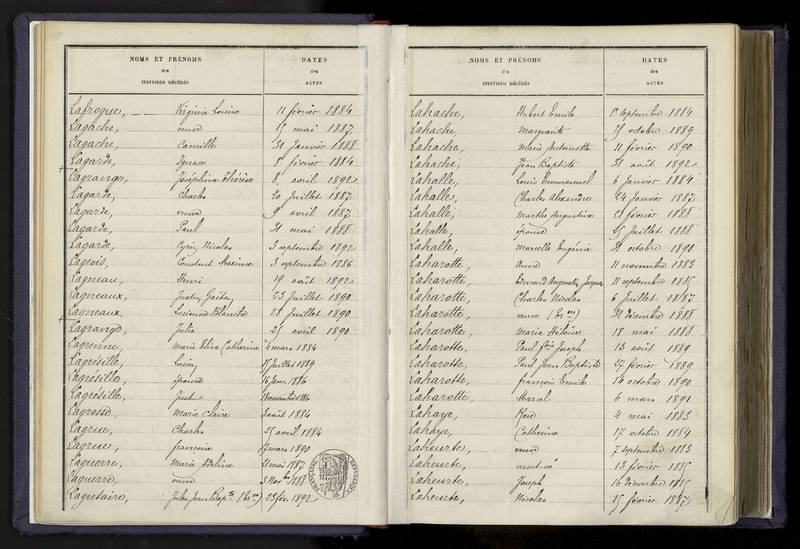 NOMS ET PRÉNOMS
des
INDIVIDUS DÉCÉDÉS
DATES
des
ACTES
Lafroque, Virginie Louise 11 février 1884
Lagache, veuve 15 mai 1887
Lagache, Camille 31 Janvier 1888
Lagarde, Ignace 8 février 1884
Lagrange, Joséphine Thérèse 8 avril 1892
Lagarde, Charles 20 Juillet 1887
Lagarde, veuve 9 avril 1887
Lagarde, Paul 31 mai 1888
Lagarde, Nicolas 3 septembre 1892
Lageois, Constant Maxime 3 septembre 1886
Lagneau, Henri 19 août 1892
Lagneaux, 23 Juillet 1890
Lagneaux, Lucienne Blanche 28 Juillet 1890
Lagrange, Julie 25 avril 1890
Lagrenne, Marie Elisa Catherine 4 mars 1884
Lagrésille, Lucien, 17 Juillet 1889
Lagrésille, épouse 16 Janv. 1886
Lagrésille, Just 1886
Lagrosse, Marie Claire août 1884
Lagrue, Charles 25 avril 1884
Lagrue, françoise 7 mars 1890
Laguerre, Marie Adeline 21 mai 1887
Laguerre, veuve 3 Nov.bre 1888
Lagutaire, Jules Jean Bapte 23 fév. 1892
RÉPUBLIQUE FRANÇAISE
NOMS ET PRÉNOMS
des
INDIVIDUS DÉCÉDÉS
DATES
des
ACTES
Lahache, Hubert Emile 1er septembre 1884
Lahache, Marguerite 25 octobre 1889
Lahache, Marie Antoinette 11 février 1890
Lahache, Jean Baptiste 31 août 1892
Lahalle, Louis Emmanuel 6 Janvier 1884
Lahalle, Charles Alexandre 24 Janvier 1887
Lahalle, Marthe Augustine 28 février 1888
Lahalle, épouse 25 Juillet 1888
Lahalle, Marcelle Eugénie 31 octobre 1890
Laharotte, Anne 11 novembre 1883
Laharotte, 11 septembre 1885
Laharotte, Charles Nicolas 6 Juillet 1887
Laharotte, veuve 21 décembre 1888
Laharotte, Maria Héloïse 18 mai 1888
Laharotte, Paul Joseph 13 août 1889
Laharotte, Paul Jean Baptiste 27 février 1889
Laharotte, françois Emile 14 octobre 1890
Laharotte, Marcel 6 mars 1891
Lahaye, Rose 4 mai 1883
Lahaye, Catherine 17 octobre 1884
Laheurte, veuve 7 septembre 1883
Laheurte, mort-né 13 février 1885
Laheurte, Joseph 16 décembre 1885
Laheurte, Nicolas 15 février 1887